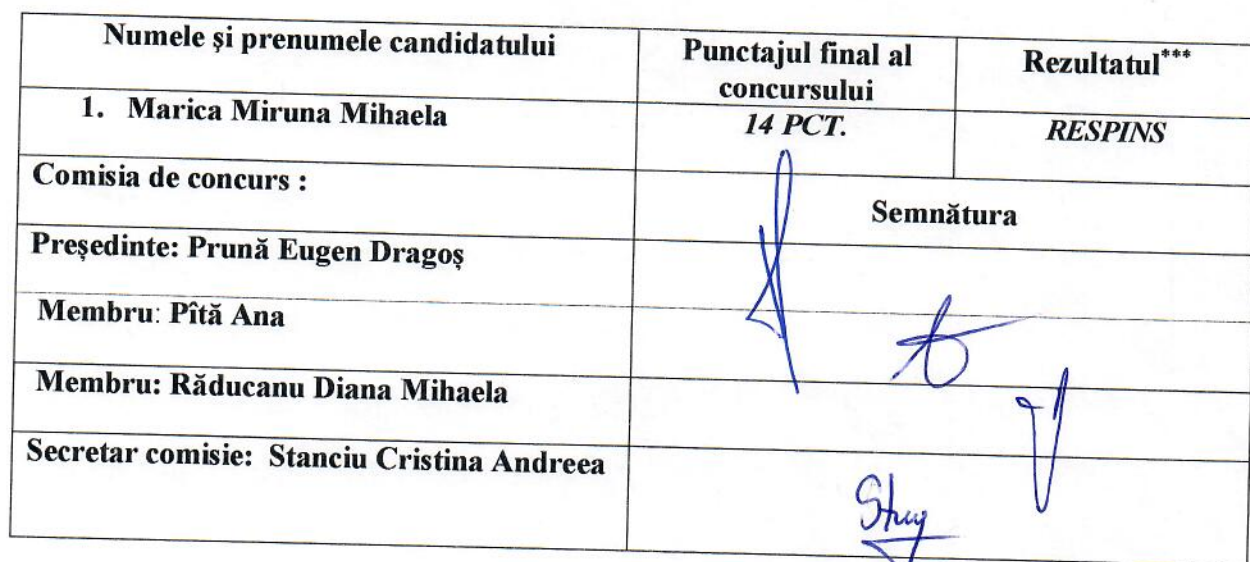 Numele și prenumele candidatului
Punctajul final al
concursului
Rezultatul***
1. Marica Miruna Mihaela
14 PCT.
RESPINS
Comisia de concurs :
Semnătura
Președinte: Prună Eugen Dragoș
Membru: Pîtă Ana
Membru: Răducanu Diana Mihaela
Secretar comisie: Stanciu Cristina Andreea